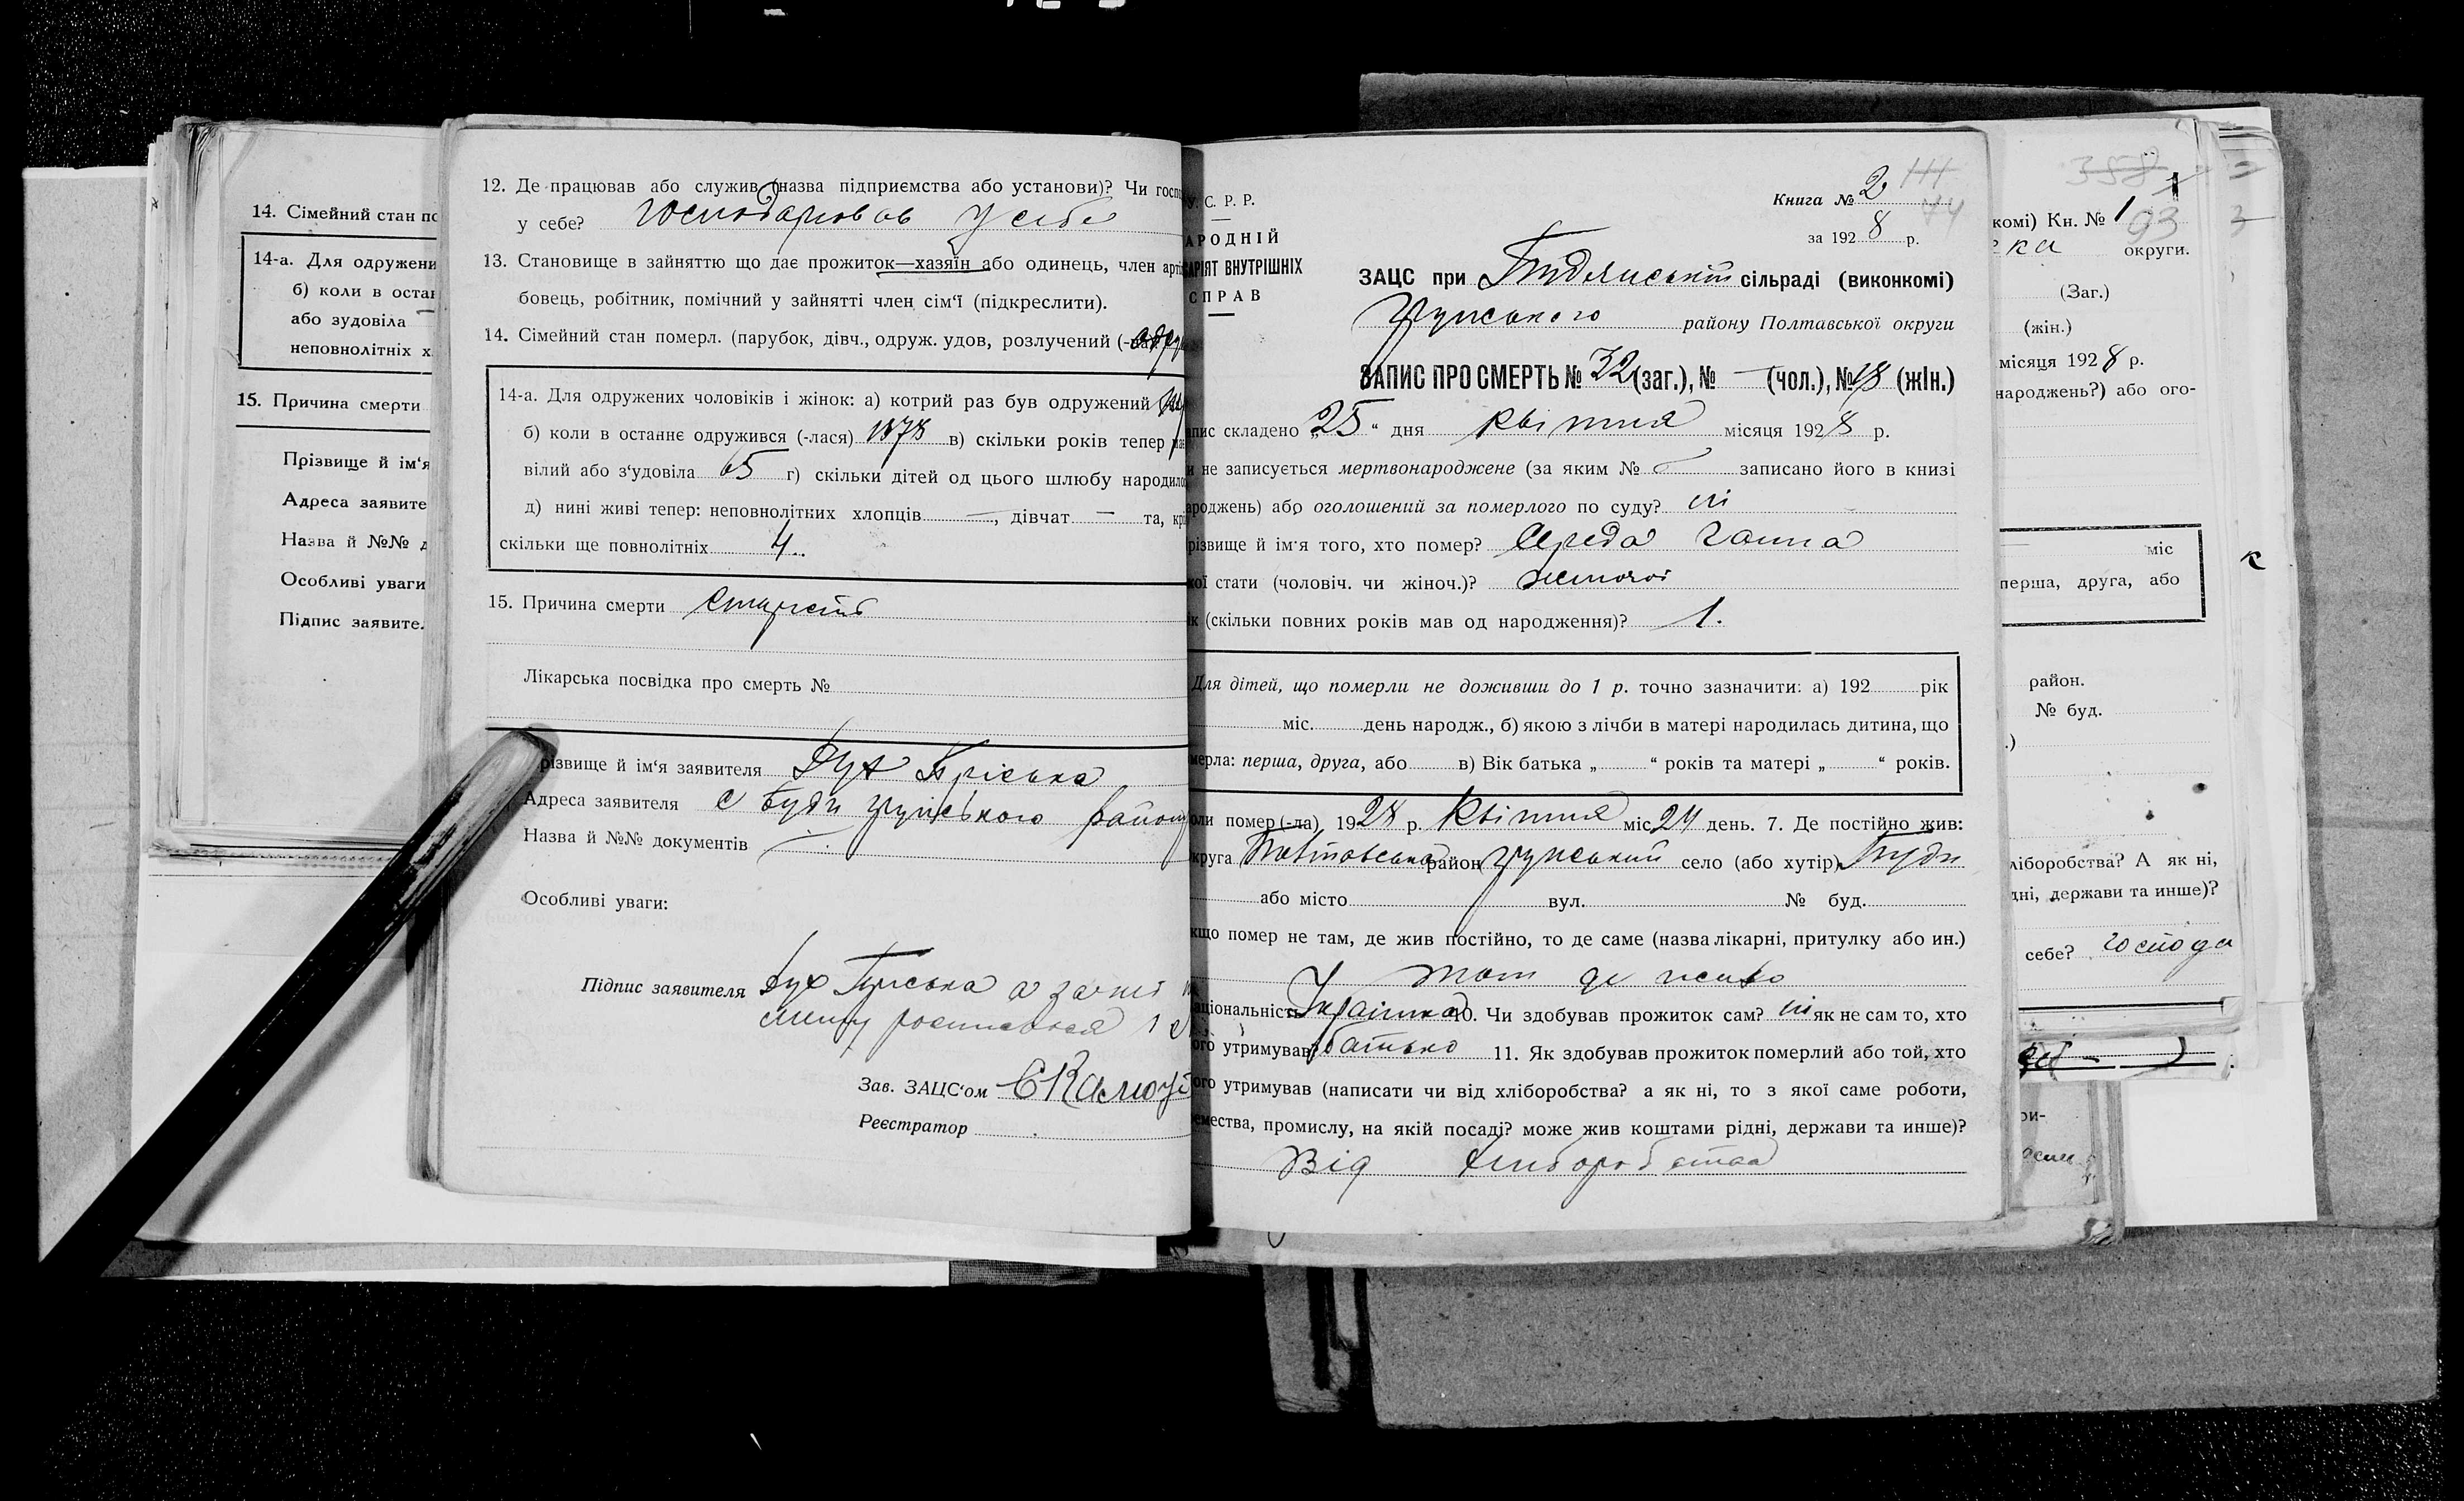 14. Сімейний стан по
14-а. Для одружени
б) коли в остан
або зудовіла
неповнолітніх х
15. Причина смерти
Прізвище й ім'я
Адреса заявите
Назва й №№ д
Особливі уваги
Підпис заявите.
12. Де працював або служив (назва підприємства або установи)? Чи госпо
у себе? господарював у себе
13. Становище в зайняттю що дає прожиток—хазяїн або одинець, член арті
бовець, робітник, помічний у зайнятті член сім'ї (підкреслити).
14. Сімейний стан померл. (парубок, дівч., одруж. удов, розлучений (-на)
14-а. Для одружених чоловіків і жінок: а) котрий раз був одружений
б) коли в останнє одружився (-лася) 1878 в) скільки років тепер
вілий або з'удовіла 65 г) скільки дітей од цього шлюбу народило
д) нині живі тепер: неповнолітких хлопців —, дівчат — та,
скільки ще повнолітніх 4.
15. Причина смерти старість
Лікарська посвідка про смерть №
різвище й ім'я заявителя Дух Пріська
Адреса заявителя с Буди грунського району
Назва й №№ документів
Особливі уваги:
Підпис заявителя Дух Пріська а за неї
Зав. ЗАЦС'ом
Реєстратор
У. С. Р. Р.
АРОДНІЙ
АРІЯТ ВНУТРІШНІХ
СПРАВ
Книга № 2
111
74
за 1928 р.
ЗАЦС при сільраді (виконкомі)
Грунського району Полтавської округи
ЗАПИС ПРО СМЕРТЬ № 32 (заг.), № — (чол.), № 18 (жін.)
апис складено „25“ дня квітня місяця 1928 р.
и не записується мертвонароджене (за яким № записано його в книзі
ароджень) або оголошений за померлого по суду? ні
різвище й ім'я того, хто помер? Середа Ганна
кої стати (чоловіч. чи жіноч.)? жіночої
ік (скільки повних років мав од народження)? 1.
Для дітей, що померли не доживши до 1 р. точно зазначити: а) 192 рік
міс. день народж., б) якою з лічби в матері народилась дитина, що
мерла: перша, друга, або в) Вік батька „ “ років та матері „ “ років.
оли помер (-ла) 1928 р. Квітня міс 24 день. 7. Де постійно жив:
круга Полтавська район Грунський село (або хутір) Буди
або місто вул. № буд.
кщо помер не там, де жив постійно, то де саме (назва лікарні, притулку або ин.)
там де жила
аціональність Українка 10. Чи здобував прожиток сам? ні як не сам то, хто
ого утримував? батько 11. Як здобував прожиток померлий або той, хто
ого утримував (написати чи від хліборобства? а як ні, то з якої саме роботи,
емества, промислу, на якій посаді? може жив коштами рідні, держави та инше)?
Від хліборобства
358
комі) Кн. № 1
93
ка округи.
(Заг.)
(жін.)
місяця 1928 р.
народжень?) або ого-
міс
перша, друга, або
район.
№ буд.
.)
ліборобства? А як ні,
дні, держави та инше)?
себе? господа
ри-